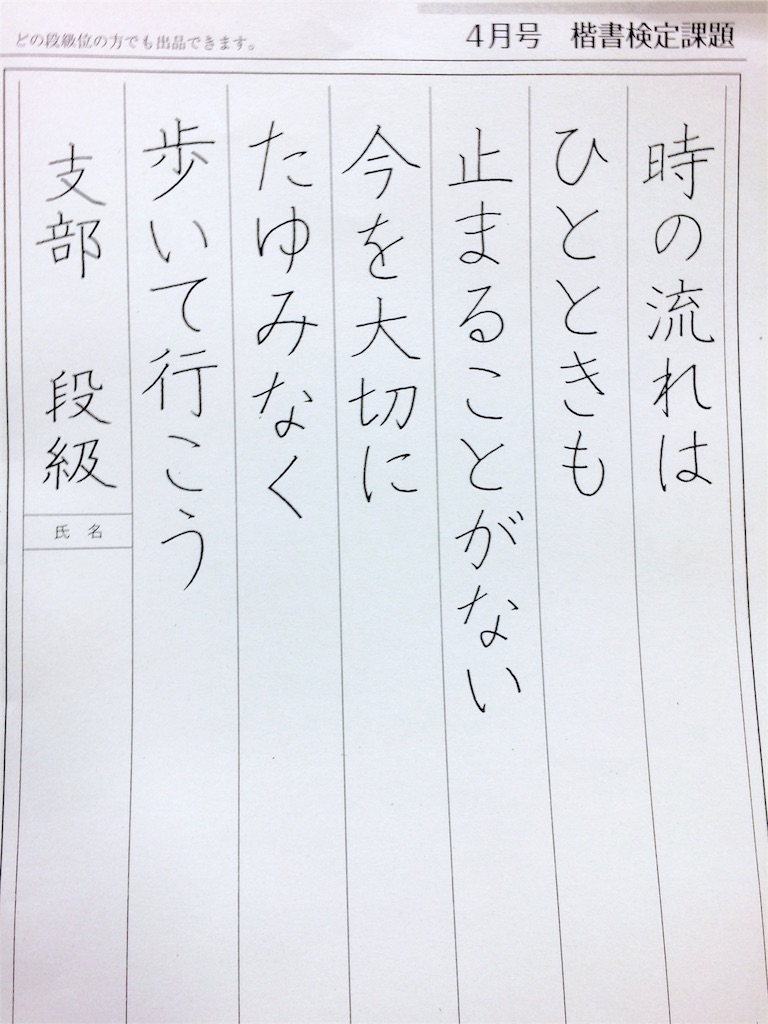 どの段級位の方でも出品できます。
4月号 楷書検定課題
時の流れは
ひとときも
止まることがない
今を大切に
たゆみなく
歩いて行こう
支部 段級
氏名